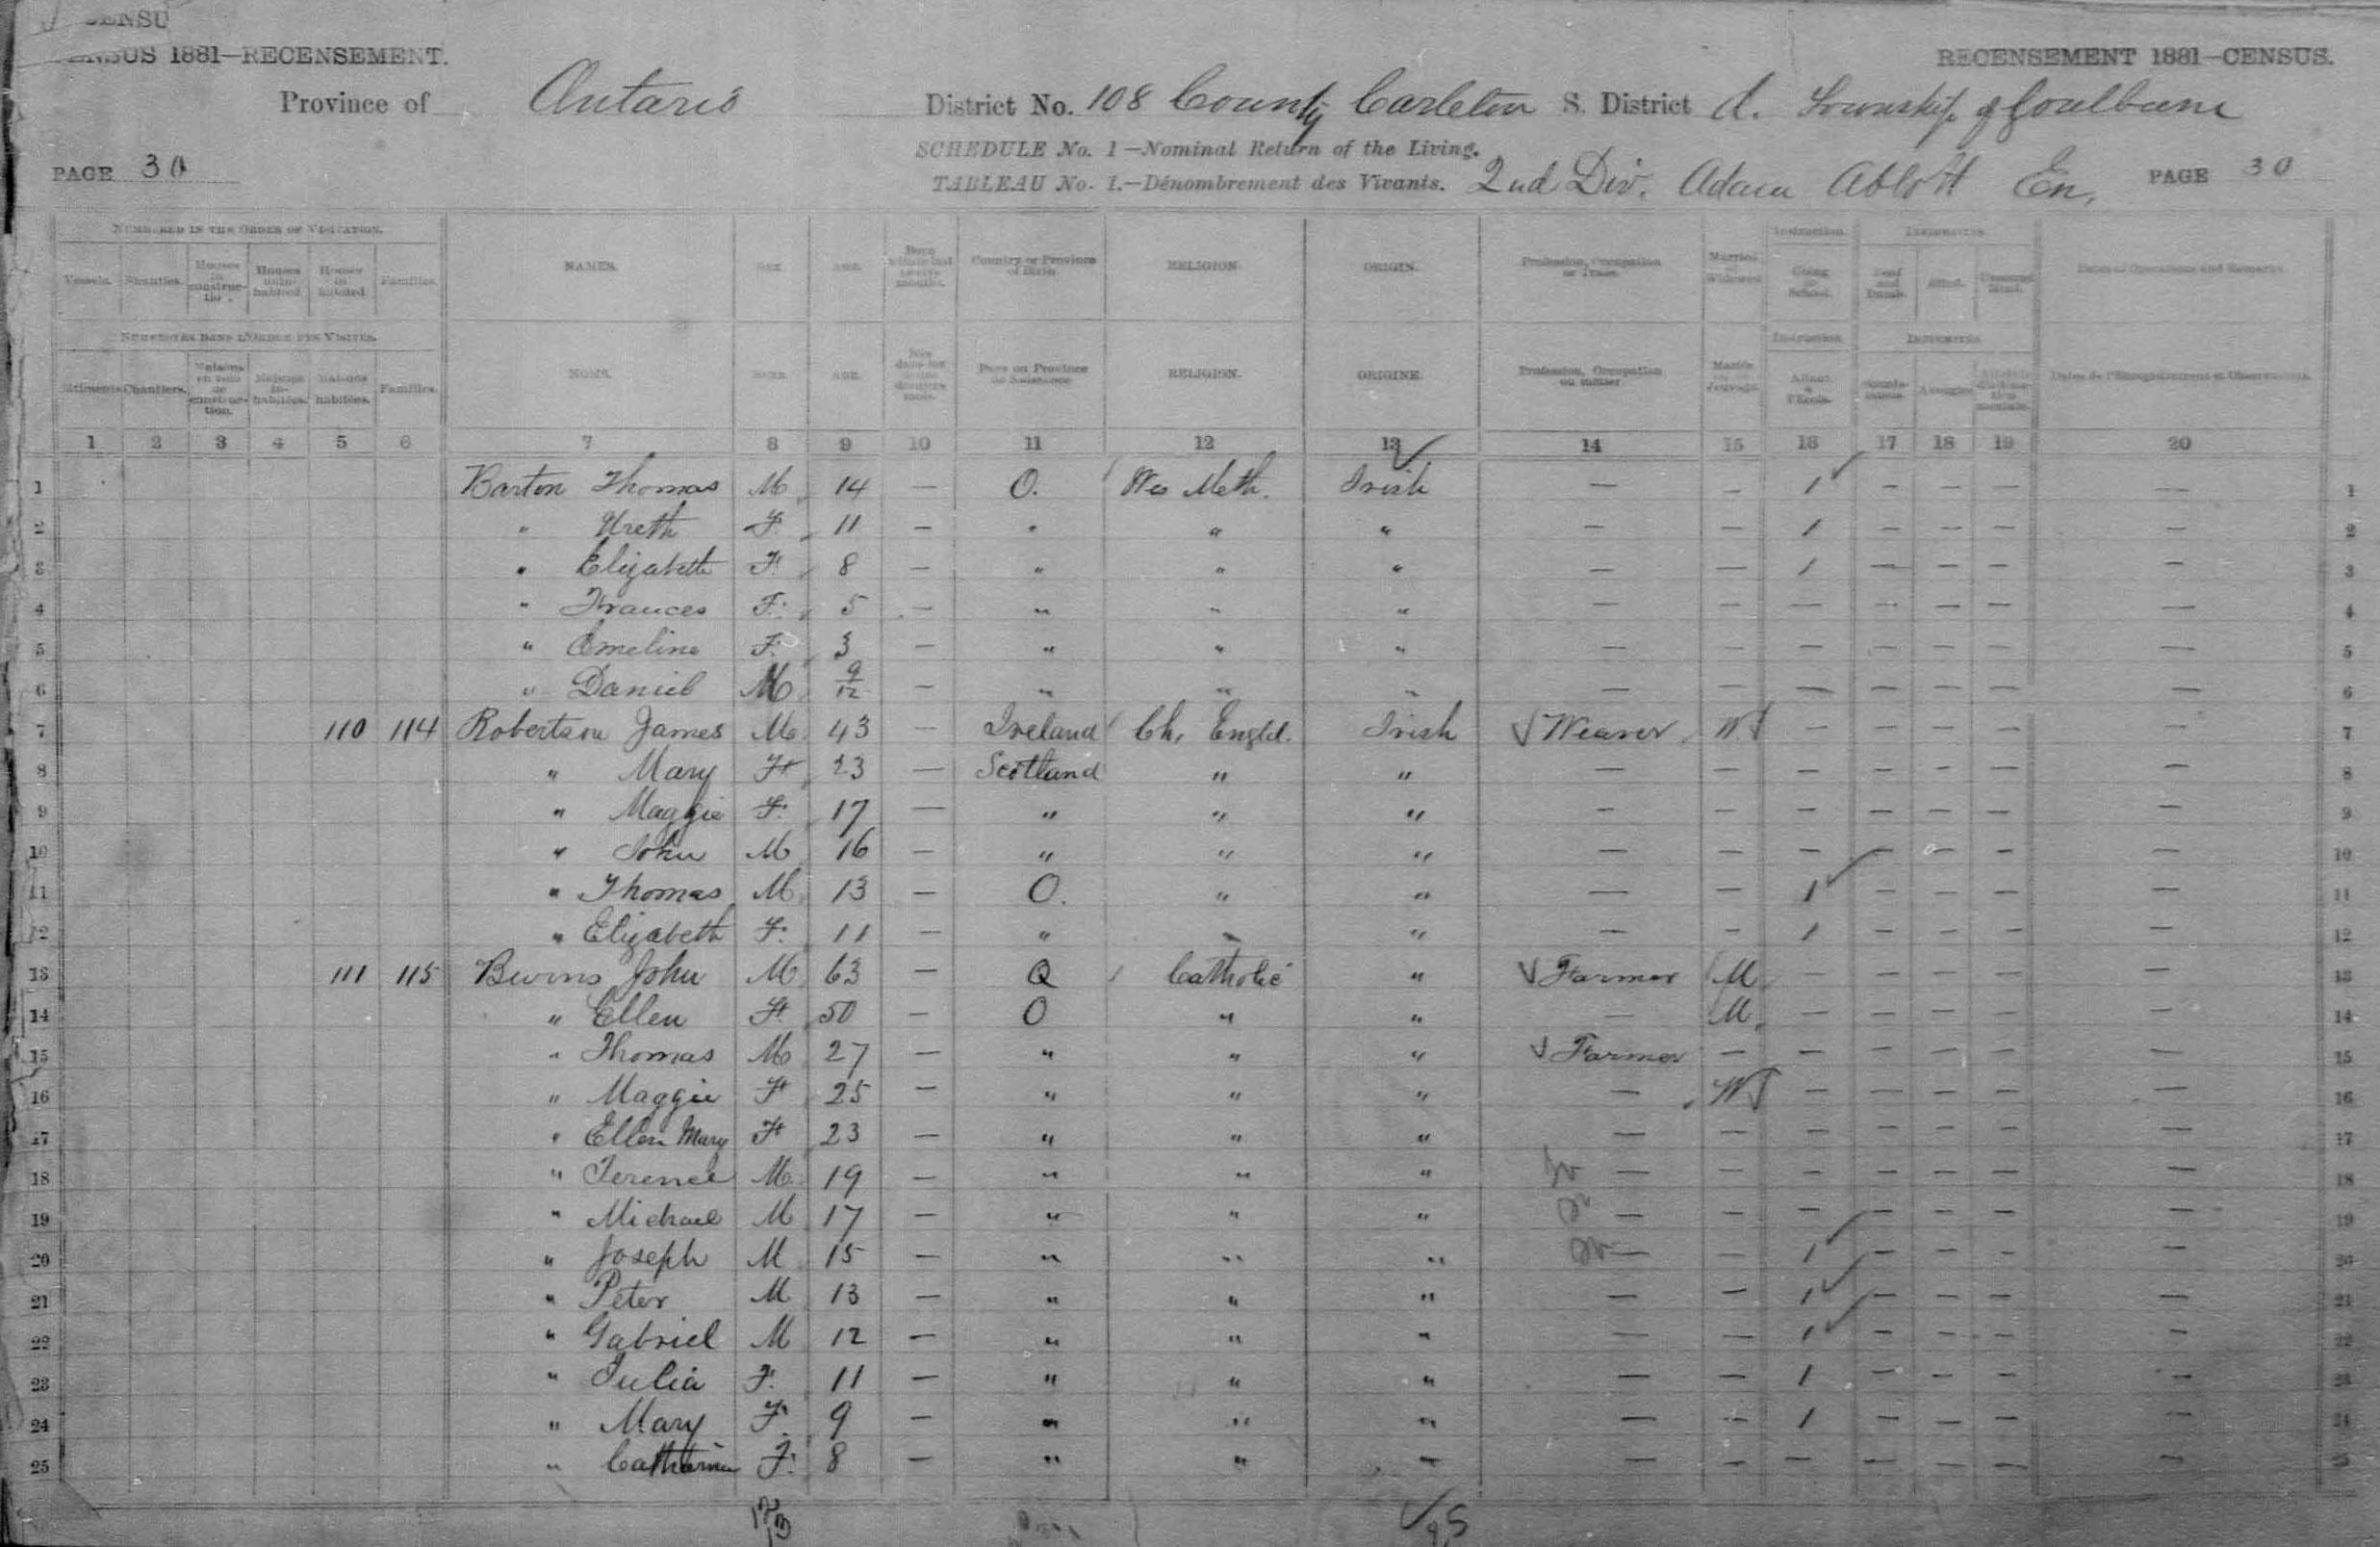 CENSU
CENSUS 1881—RECENSEMENT. RECENSEMENT 1881—CENSUS.
Province of Ontario District No. 108 County Carleton S. District A. Township of Goulburn
SCHEDULE No. 1—Nominal Return of the Living.
PAGE 30 TABLEAU No. 1.—Dénombrement des Vivants. 2nd Div. Adam Abbott En. PAGE 30
NUMBERED IN THE ORDER OF VISITATION. Instruction. INFIRMITIES
Vessels. Shanties. Houses in construction. Houses uninhabited Houses inhabited. Families. NAMES. SEX. AGE. Born within last twelve months. Country or Province of Birth. RELIGION. ORIGIN. Profession, Occupation or Trade. Married or Widowed Going to School. Deaf and Dumb. Blind. Unsound Mind. Dates of Operations and Remarks.
NUMÉROTÉS DANS L'ORDRE DES VISITES. Instruction INFIRMITÉS
Bâtiments Chantiers. Maisons en voie de construction. Maisons inhabitées. Maisons habitées. Familles. NOMS. SEXE. AGE. Nés dans les douze derniers mois. Pays ou Province de Naissance. RELIGION. ORIGINE. Profession, Occupation ou métier Mariés ou en veuvage. Allant à l'Ecole. Sourds-muets. Aveugles Dates de l'Enregistrement et Observations.
1 2 3 4 5 6 7 8 9 10 11 12 13 14 15 16 17 18 19 20
1 Barton Thomas M 14 — O. Wes Meth. Irish — — 1 — — — — 1
2 " Ureth F. 11 — " " " — — 1 — — — — 2
3 " Elizabeth F. 8 — " " " — — 1 — — — — 3
4 " Frances F. 5 — " " " — — — — — — — 4
5 " Emeline F. 3 — " " " — — — — — — — 5
6 " Daniel M 9/12 — " " " — — — — — — — 6
7 110 114 Robertson James M 43 — Ireland Ch. Engld. Irish Weaver W — — — — — 7
8 " Mary F 23 — Scotland " " — — — — — — — 8
9 " Maggie F. 17 — " " " — — — — — — — 9
10 " John M 16 — " " " — — — — — — — 10
11 " Thomas M 13 — O. " " — — 1 — — — — 11
12 " Elizabeth F. 11 — " " " — — 1 — — — — 12
13 111 115 Burns John M 63 — Q Catholic " Farmer M — — — — — 13
14 " Ellen F 50 — O " " — M — — — — — 14
15 " Thomas M 27 — " " " Farmer — — — — — — 15
16 " Maggie F 25 — " " " — W — — — — — 16
17 " Ellen Mary F 23 — " " " — — — — — — — 17
18 " Terence M 19 — " " " — — — — — — — 18
19 " Michael M 17 — " " " — — — — — — — 19
20 " Joseph M 15 — " " " — — 1 — — — — 20
21 " Peter M 13 — " " " — — 1 — — — — 21
22 " Gabriel M 12 — " " " — — 1 — — — — 22
23 " Julia F. 11 — " " " — — 1 — — — — 23
24 " Mary F. 9 — " " " — — 1 — — — — 24
25 " Catharine F. 8 — " " " — — — — — — — 25